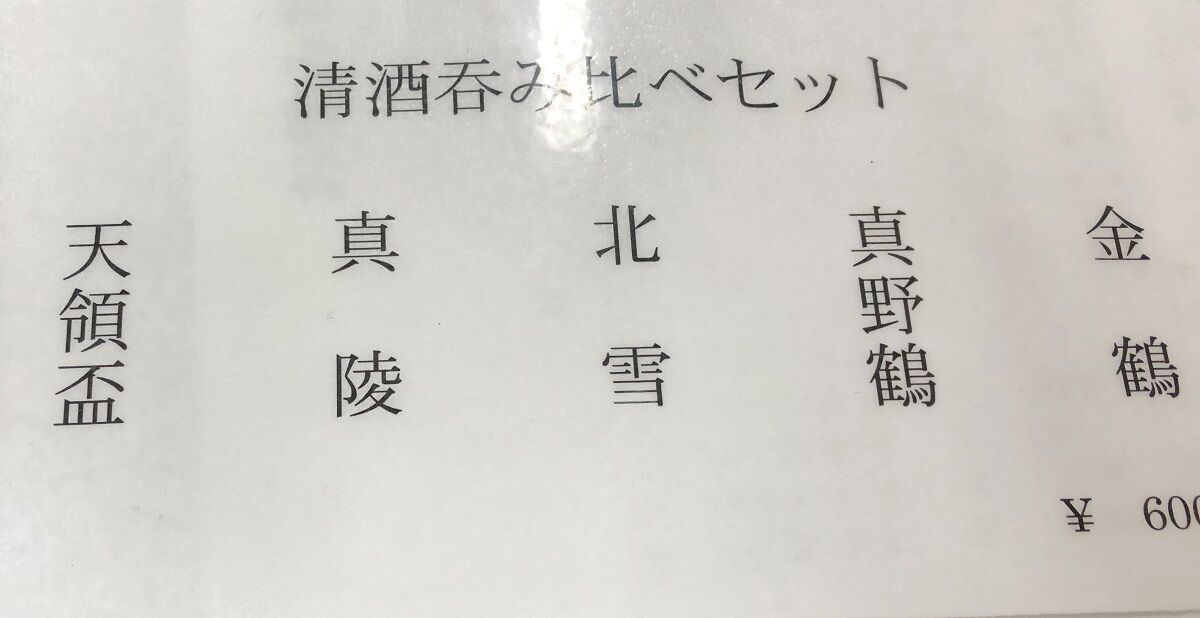 清酒呑み比べセット
金鶴
真野鶴
北雪
真陵
天領盃
¥ 600